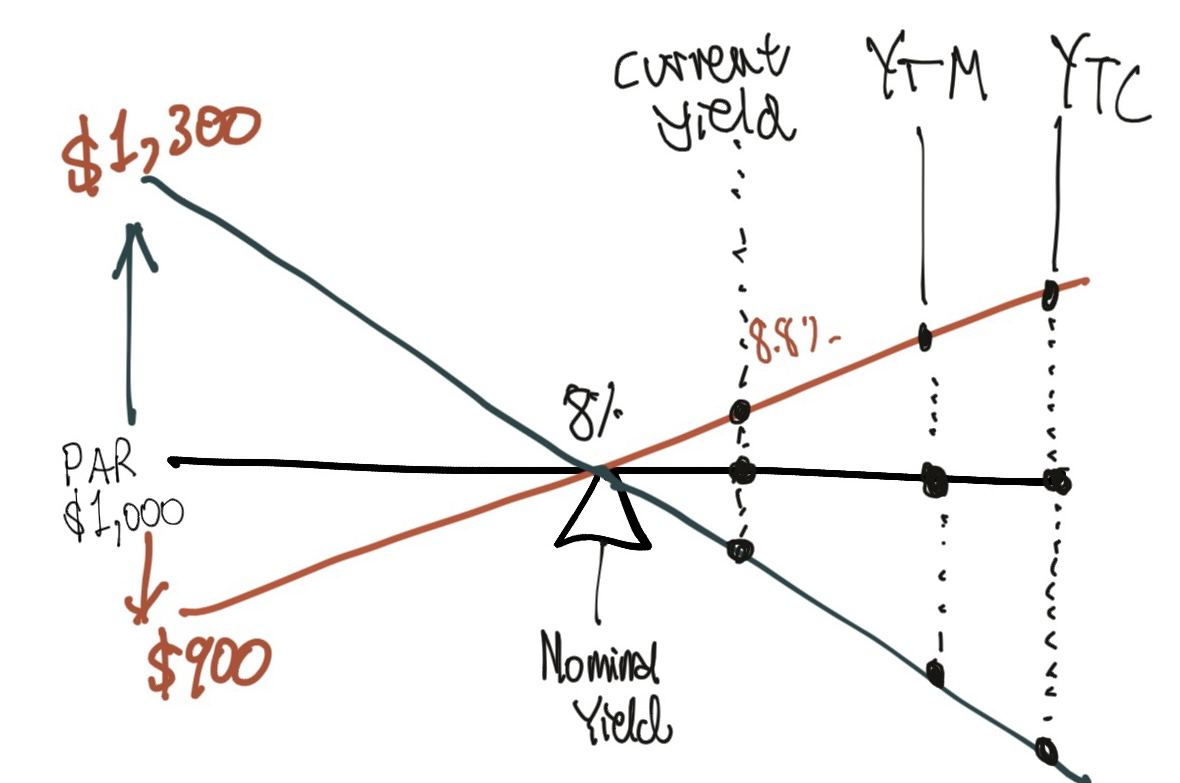 current
yield
YTM
YTC
$1,300
8.8%
8%
PAR
$1,000
$900
Nominal
Yield